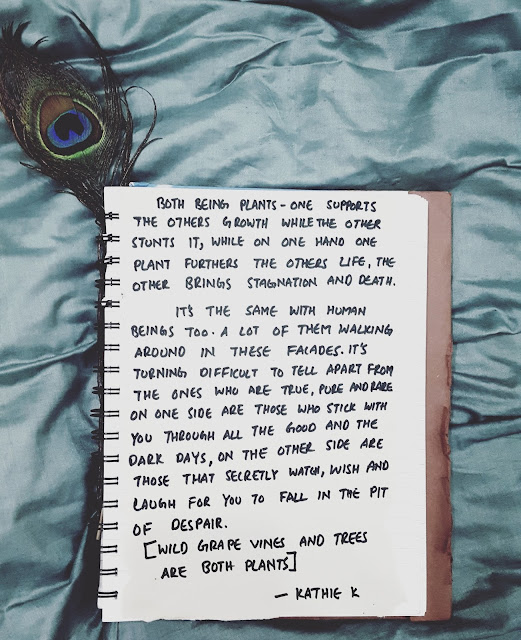 BOTH BEING PLANTS - ONE SUPPORTS
THE OTHERS GROWTH WHILE THE OTHER
STUNTS IT, WHILE ON ONE HAND ONE
PLANT FURTHERS THE OTHERS LIFE, THE
OTHER BRINGS STAGNATION AND DEATH.
IT'S THE SAME WITH HUMAN
BEINGS TOO. A LOT OF THEM WALKING
AROUND IN THESE FACADES. IT'S
TURNING DIFFICULT TO TELL APART FROM
THE ONES WHO ARE TRUE, PURE AND RARE
ON ONE SIDE ARE THOSE WHO STICK WITH
YOU THROUGH ALL THE GOOD AND THE
DARK DAYS, ON THE OTHER SIDE ARE
THOSE THAT SECRETLY WATCH, WISH AND
LAUGH FOR YOU TO FALL IN THE PIT
OF DESPAIR.
[WILD GRAPE VINES AND TREES
ARE BOTH PLANTS]
- KATHIE K